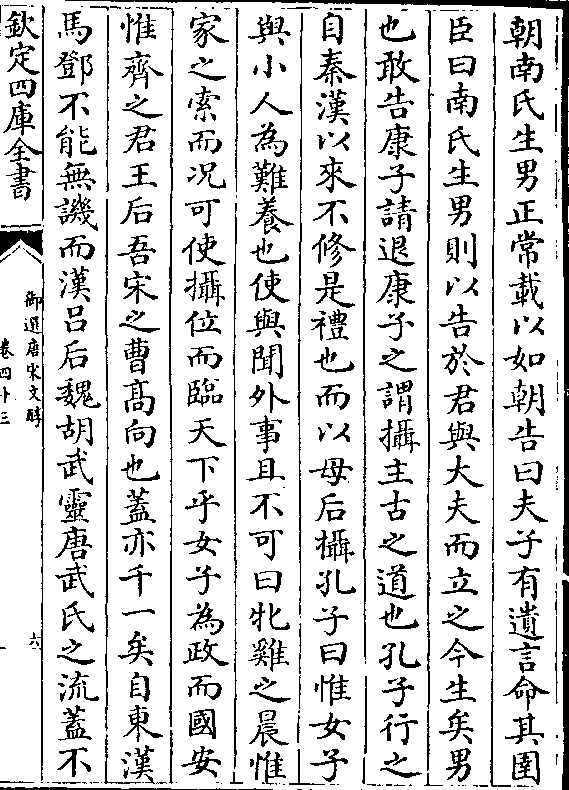 朝南氏生男正常載以如朝告曰夫子有遺言命其圉
臣曰南氏生男則以告於君與大夫而立之今生矣男
也敢告康子請退康子之謂攝主古之道也孔子行之
自秦漢以來不修是禮也而以母后攝孔子曰惟女子
與小人為難養也使與聞外事且不可曰牝雞之晨惟
家之索而况可使攝位而臨天下乎女子為政而國安
惟齊之君王后吾宋之曹髙向也蓋亦千一矣自東漢
馬鄧不能無譏而漢吕后魏胡武靈唐武氏之流蓋不
欽定四庫全書
御選唐宋文醇
卷四十三
六